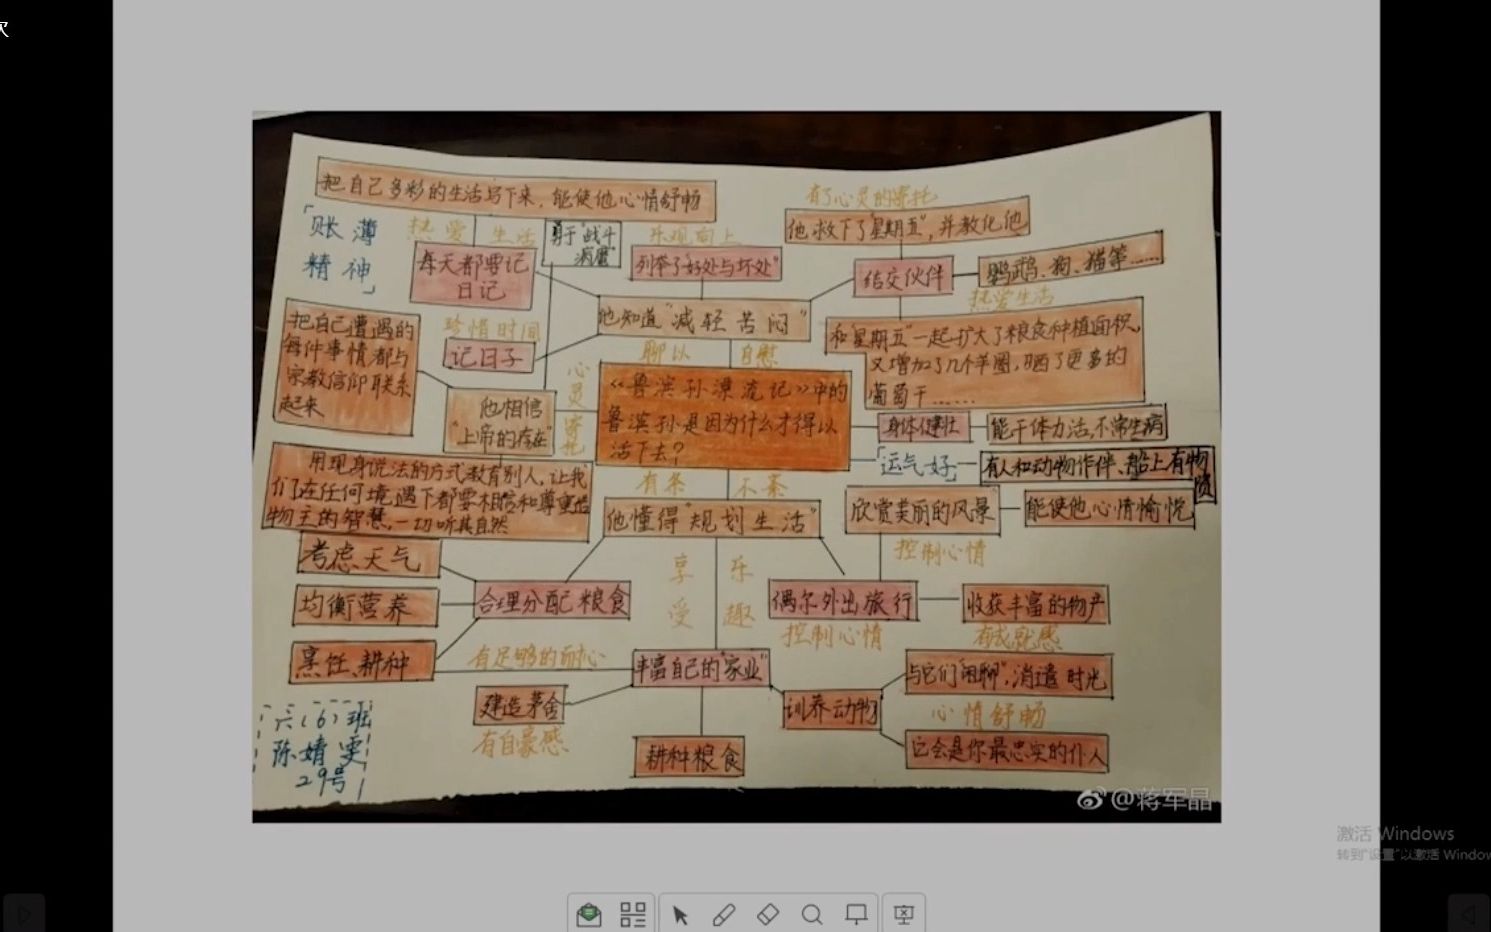 次
把自己多彩的生活写下来，能使他心情舒畅
「账薄
精神」
热爱 生活
每天都要记
日记
勇于"战斗
病魔"
乐观向上
列举了"好处与坏处"
有了心灵的寄托
他救下了"星期五"，并教化他
结交伙伴
鹦鹉、狗、猫等……
热爱生活
他知道"减轻苦闷"
珍惜时间
记日子
把自己遭遇的
每件事情都与
宗教信仰联系
起来
他相信
"上帝的存在"
心灵寄托
聊以 自慰
和"星期五"一起扩大了粮食种植面积，
又增加了几个羊圈，晒了更多的
葡萄干……
《鲁滨孙漂流记》中的
鲁滨孙是因为什么才得以
活下去？
身体健壮
能干体力活，不常生病
「运气好」
有人和动物作伴、船上有物
资
用现身说法的方式教育别人，让我
们在任何境遇下都要相信和尊重造
物主的智慧，一切听其自然
有条 不紊
他懂得"规划生活"
欣赏美丽的风景
能使他心情愉悦
控制心情
考虑天气
均衡营养
烹饪、耕种
合理分配粮食
享受
乐趣
偶尔外出旅行
控制心情
收获丰富的物产
有成就感
有足够的耐心
丰富自己的"家业"
建造茅舍
有自豪感
耕种粮食
训养动物
与它们"闲聊"，消遣时光
心情舒畅
它会是你最忠实的仆人
六（6）班
陈婧雯
29号
@蒋军晶
激活 Windows
转到"设置"以激活 Window